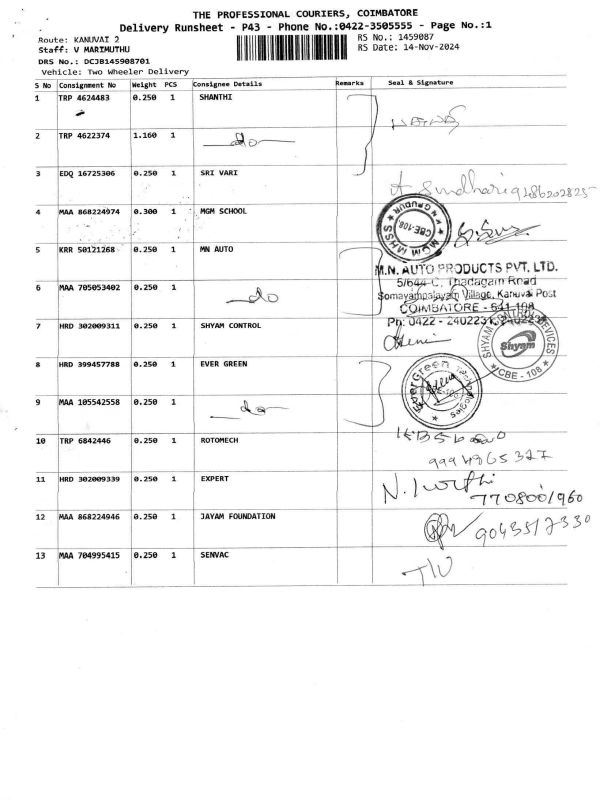 THE PROFESSIONAL COURIERS, COIMBATORE
Delivery Runsheet - P43 - Phone No.:0422-3505555 - Page No.:1
Route: KANUVAI 2
RS No.: 1459087
Staff: V MARIMUTHU
RS Date: 14-Nov-2024
DRS No.: DCJB145908701
Vehicle: Two Wheeler Delivery
S No Consignment No Weight PCS Consignee Details Remarks Seal & Signature
1 TRP 4624483 0.250 1 SHANTHI
2 TRP 4622374 1.160 1 do
3 EDQ 16725306 0.250 1 SRI VARI
4 MAA 868224974 0.300 1 MGM SCHOOL
CBE-108
5 KRR 50121268 0.250 1 MN AUTO
M.N. AUTO PRODUCTS PVT. LTD.
5/644-C, Thadagam Road
6 MAA 705053402 0.250 1 do
Somayampalayam Village, Kanuvai Post
COIMBATORE - 641 108
7 HRD 302009311 0.250 1 SHYAM CONTROL
Ph: 0422 - 2402231,
SHYAM CONTROL DEVICES
Shyam
CBE - 108
8 HRD 399457788 0.250 1 EVER GREEN
Ever Green
9 MAA 105542558 0.250 1 do
10 TRP 6842446 0.250 1 ROTOMECH
11 HRD 302009339 0.250 1 EXPERT
7708001960
12 MAA 868224946 0.250 1 JAYAM FOUNDATION
9043517330
13 MAA 704995415 0.250 1 SENVAC